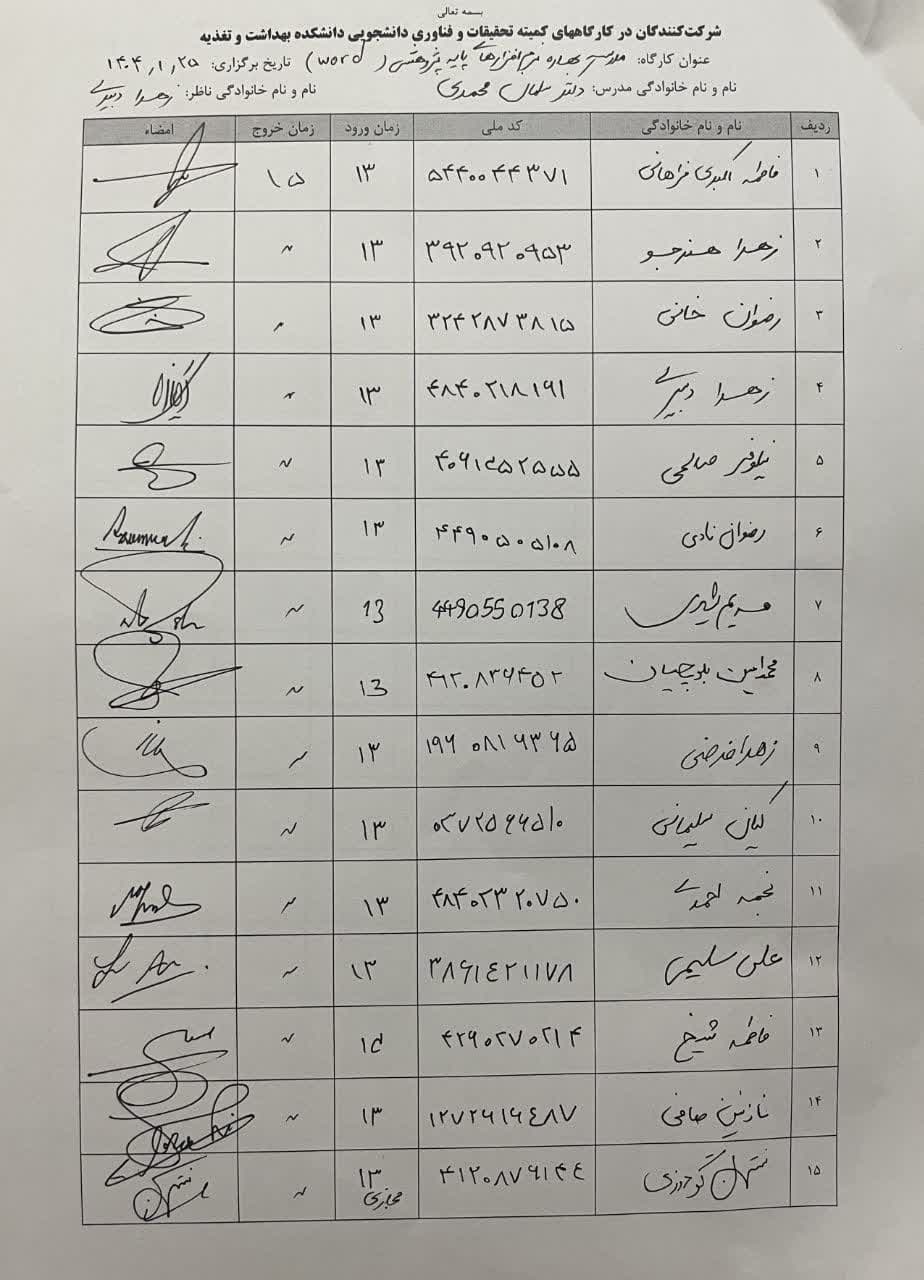 بسمه تعالی
شرکت‌کنندگان در کارگاههای کمیته تحقیقات و فناوری دانشجویی دانشکده بهداشت و تغذیه
عنوان کارگاه: مدرسه بهاره نرم افزارهای پایه پژوهشی (word) تاریخ برگزاری: ۱۴۰۴٫۱٫۲۵
نام و نام خانوادگی مدرس: دکتر سلمان محمدی نام و نام خانوادگی ناظر: زهرا دبیری
ردیف نام و نام خانوادگی کد ملی زمان ورود زمان خروج امضاء
۱ فاطمه اکبری فراهانی ۵۴۴۰۰۴۴۳۷۱ ۱۳ ۱۵
۲ زهرا هنرجو ۳۹۲۰۹۲۰۹۵۳ ۱۳ ~
۳ رضوان خانی ۳۲۴۲۸۷۳۸۱۵ ۱۳ ~
۴ زهرا دبیری ۴۸۴۰۲۱۸۱۹۱ ۱۳ ~
۵ نیلوفر صالحی ۱۳ ~
۶ رضوان نادی ۴۴۹۰۵۰۵۱۰۸ ۱۳ ~
۷ مریم 4490550138 13 ~
۸ محمدامین بلوچیان ۴۶۲۰۸۳۶۴۵۲ 13 ~
۹ زهرا فرضی ۱۹۶۰۸۱۶۳۶۵ ۱۳ ~
۱۰ کیان سلیمانی ۰۳۷۲۵۶۶۵۱۰ ۱۳ ~
۱۱ نجمه احمدی ۴۸۴۰۲۳۲۰۷۵۰ ۱۳ ~
۱۲ علی سلیمی ۳۸۶۱۴۲۱۱۷۸ ۱۳ ~
۱۳ فاطمه شیخ ۴۲۹۰۲۷۰۲۱۴ ~
۱۴ نازنین صافی ۱۲۷۲۶۱۶۴۸۷ ۱۳ ~
۱۵ نسترن گودرزی ۴۱۲۰۸۷۶۱۴۴ ۱۳ ~
مجازی